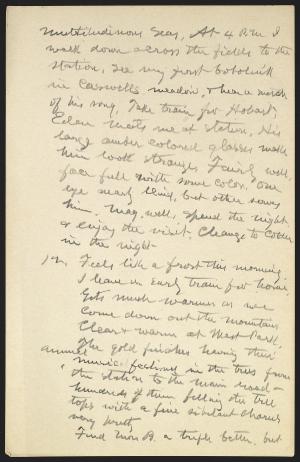 multitudinous seas. At 4 P.M. I
walk down across the fields to the
station, see my first bobolink
in Caswells meadow, & hear a snatch
of his song. Take train for Hobart,
Eden meets me at station. His
large amber colored glasses make
him look strange. Fairly well,
face full with some color. One
eye nearly blind, but other saves
him. Mag. well. Spend the night
& enjoy the visit. Change to colder
in the night
12. Feels like a frost this morning.
I leave on early train for home.
Gets much warmer as we
come down out the mountains
Clear & warm at West Park.
The gold finches having their
annual
music festival in the trees from
the station to the main road -
hundreds of them filling the tree
tops with a fine sibilant chorus
very pretty.
Find Mrs B. a trifle better, but